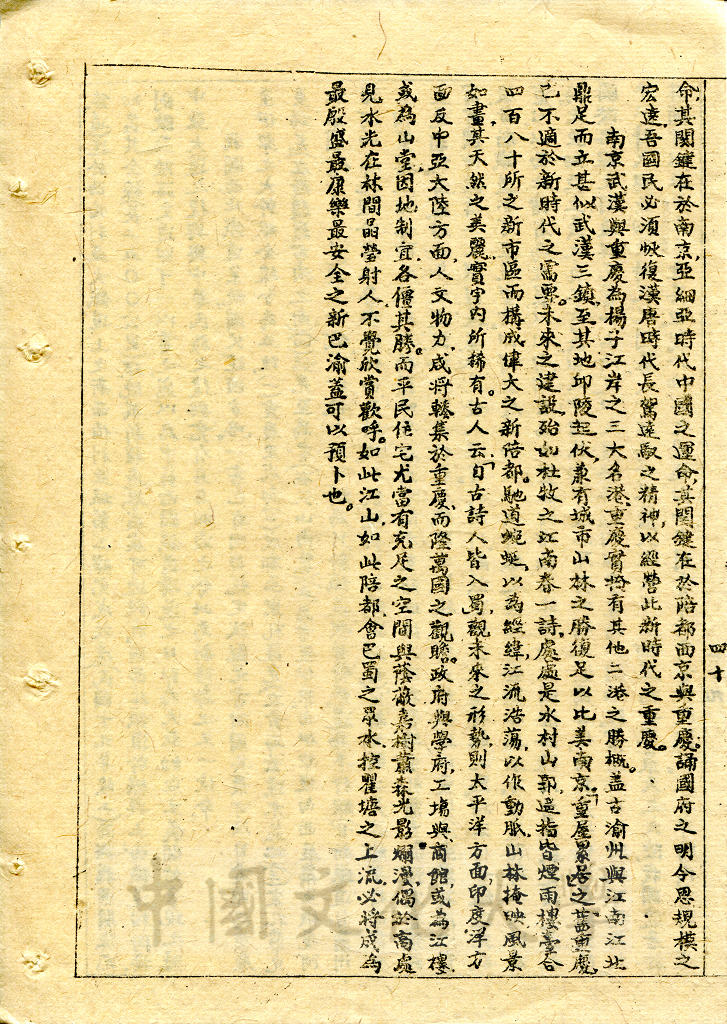 命，其關鍵在於南京，亞細亞時代中國之運命，其關鍵在於陪都西京與重慶。誦國府之明令，思規模之
宏遠，吾國民必須恢復漢唐時代長駕遠馭之精神，以經營此新時代之重慶。
南京武漢與重慶為揚子江岸之三大名港，重慶實擅有其他二港之勝概。蓋古渝州與江南江北
鼎足而立，甚似武漢三鎮，至其地邱陵起伏，兼有城市山林之勝，復足以比美南京。「重屋累居」之舊重慶，
已不適於新時代之需要。未來之建設，殆如杜牧之江南春一詩，處處是水村山郭，遙指皆煙雨樓臺，合
四百八十所之新市區而構成偉大之新陪都。馳道蜿蜒，以為經緯，江流浩蕩，以作動脈，山林掩映，風景
如畫，其天然之美麗，實宇內所稀有。古人云「自古詩人皆入蜀」，觀未來之形勢，則太平洋方面印度洋方
面及中亞大陸方面，人文物力，咸將轃集於重慶，而隆萬國之觀瞻。政府與學府，工場與商館，或為江樓，
或為山堂，因地制宜，各僵其勝。而平民住宅尤當有充足之空間與蔭蔽，嘉樹蕭森，光影爛漫，偶於高處
見水光在林間晶瑩射人，不覺欣賞歡呼。如此江山，如此陪都，會巴蜀之眾水，控瞿塘之上流，必將成為
最殷盛最康樂最安全之新巴渝，蓋可以預卜也。
四十
中國文化大學